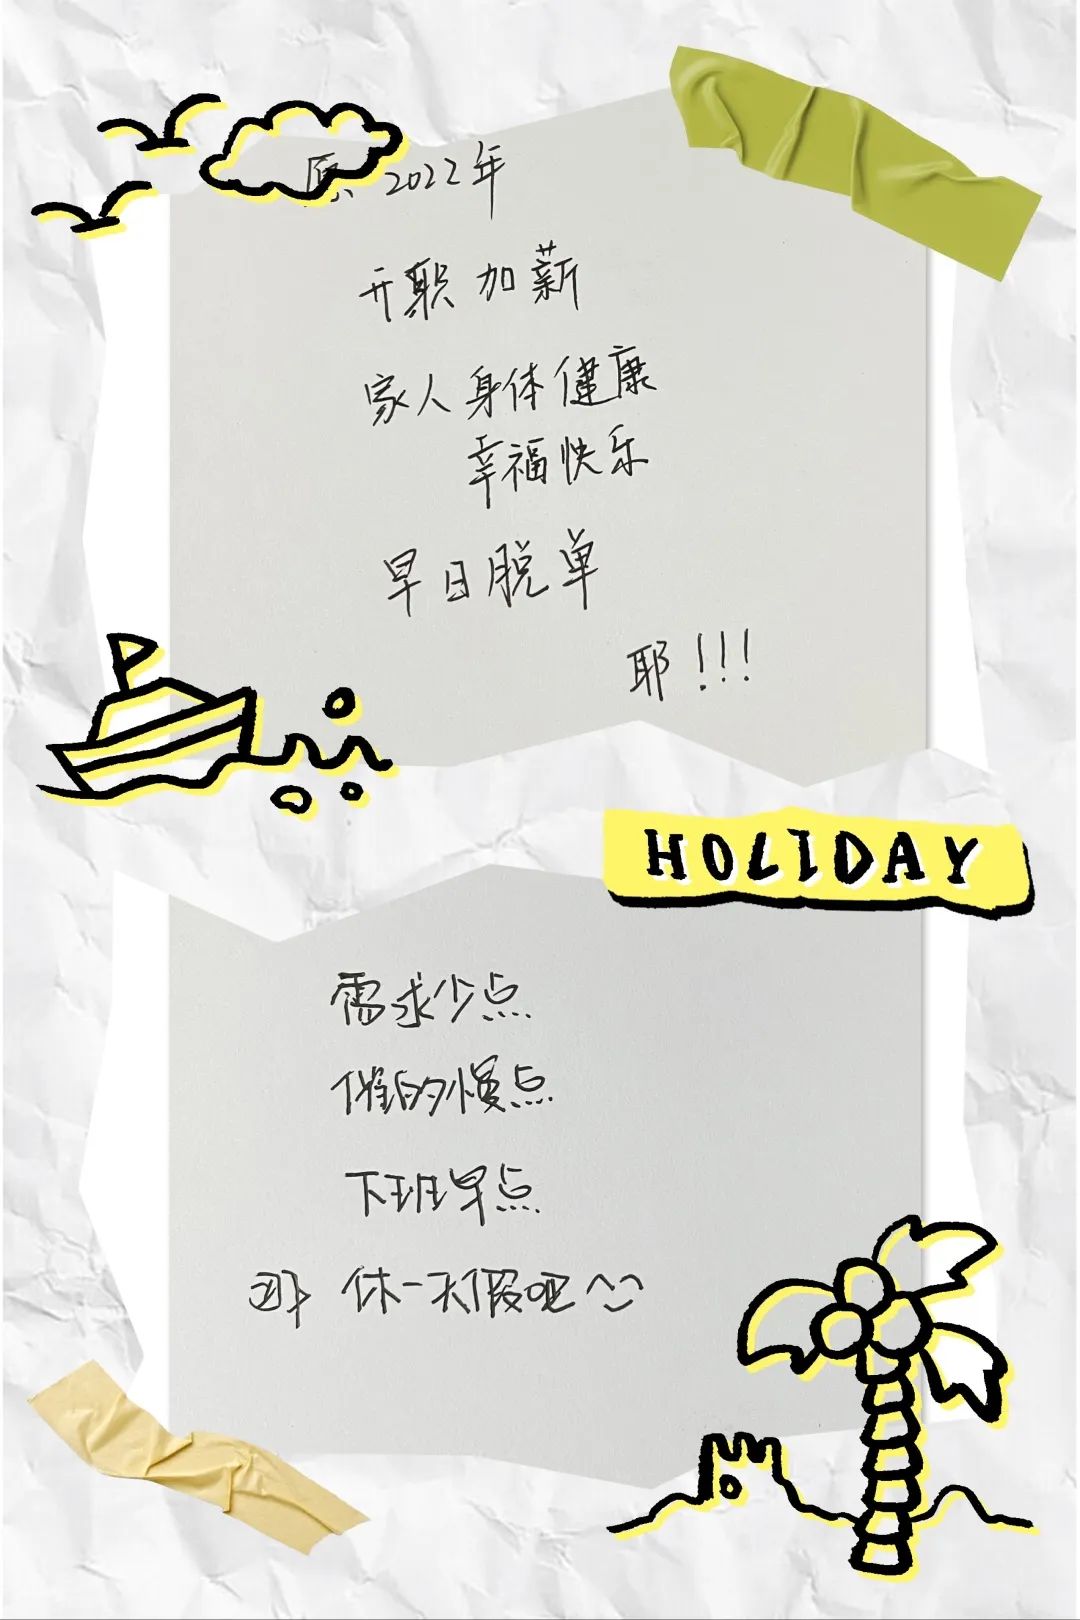 愿 2022年
升职加薪
家人身体健康
幸福快乐
早日脱单
耶!!!
HOLIDAY
需求少点
催的慢点
下班早点
休一天假吧